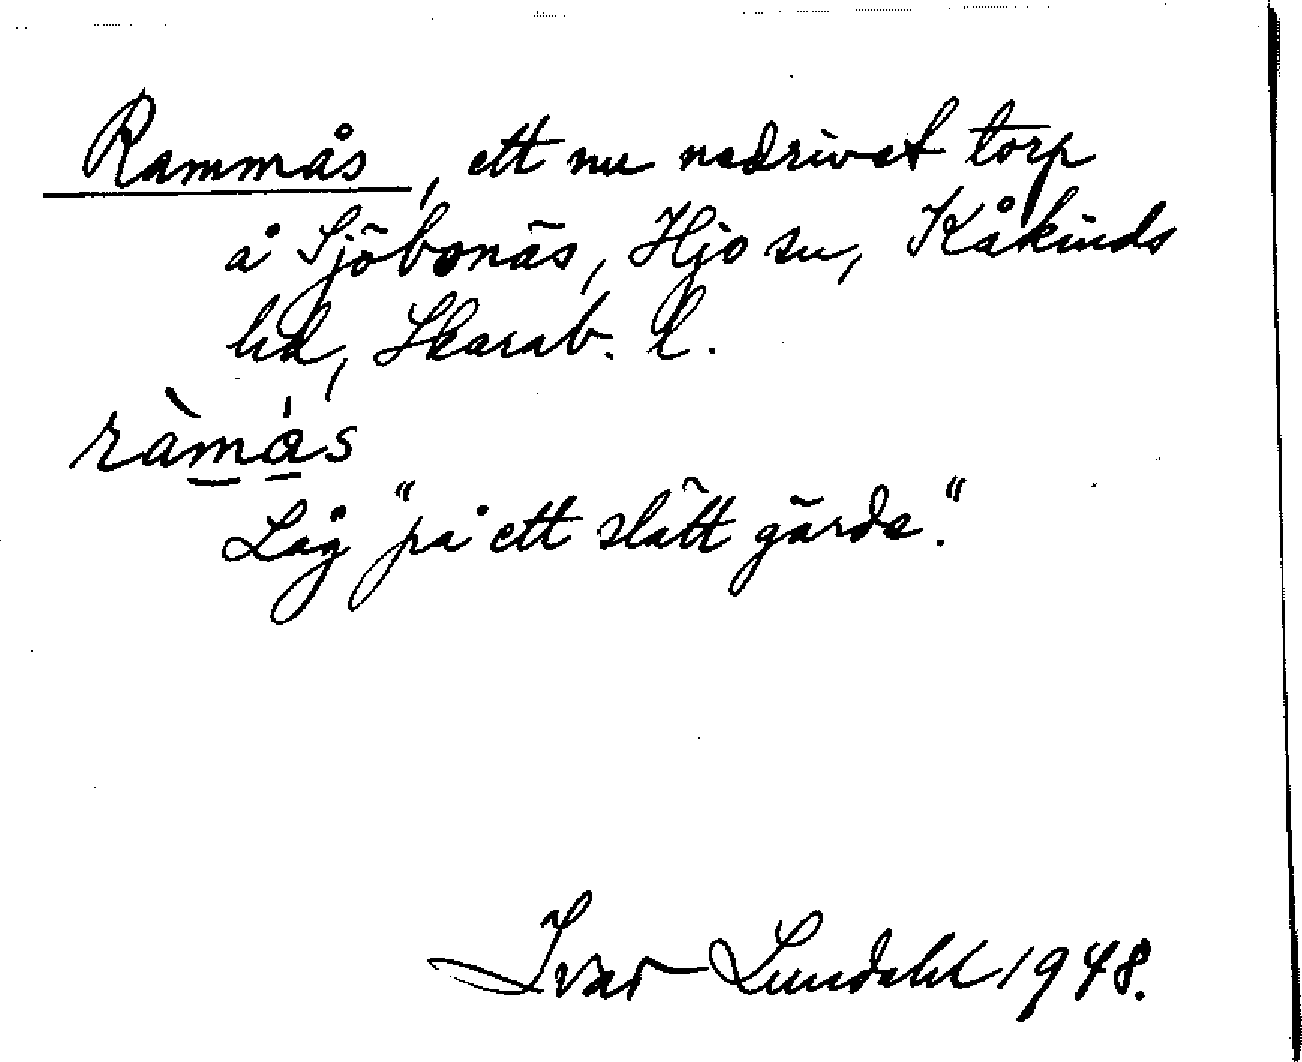 Rammås, ett nu nedrivet torp
å Sjöbonäs, Hjo sn, Kåkinds
hd, Skarab. l.
ràmås
Låg "på ett slätt gärde."
Ivar Lundahl 1948.